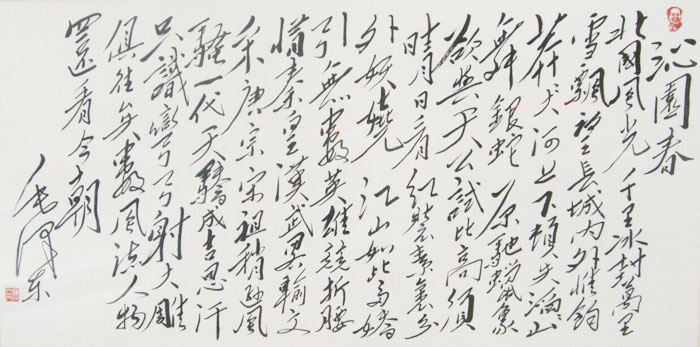 沁園春
北國風光千里冰封萬里
雪飄望長城内外惟餘
莽莽大河上下頓失滔滔山
舞銀蛇原馳蠟象
欲與天公試比高須
晴日看紅裝素裹分
外妖嬈江山如此多嬌
引無數英雄競折腰
惜秦皇漢武略輸文
采唐宗宋祖稍遜風
騷一代天驕成吉思汗
只識彎弓射大雕
俱往矣數風流人物
還看今朝
毛澤東